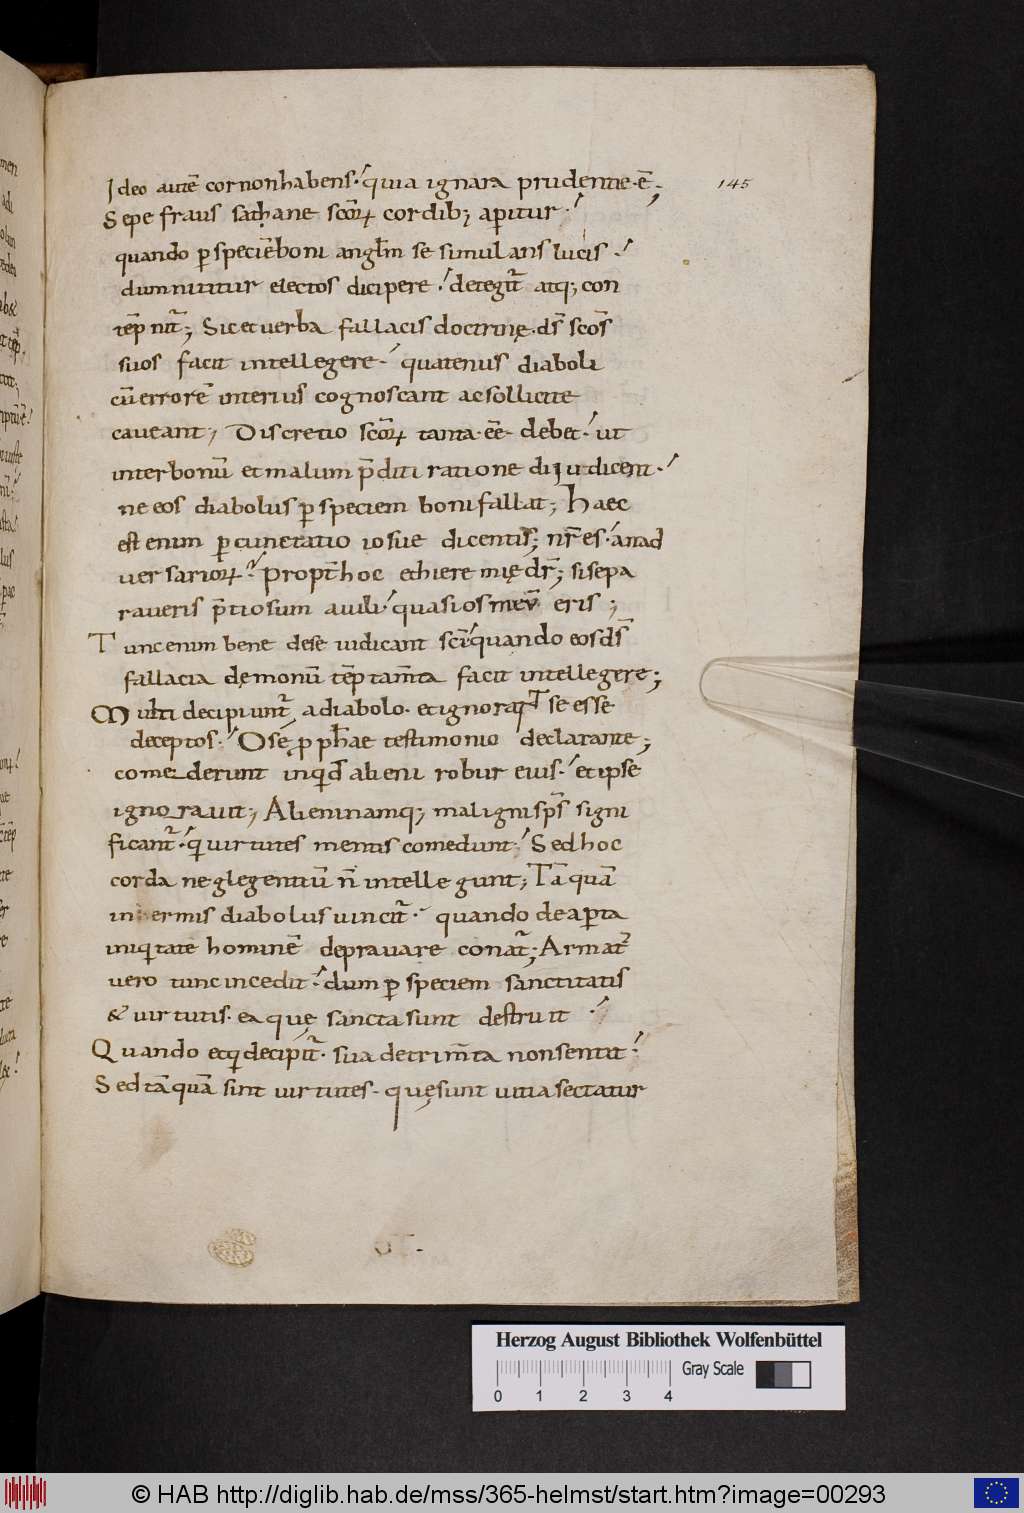 Ideo autē cor non habens· quia ignara prudentie·ē;
145
Sepe fraus sathane scōꝝ cordib; aꝑitur·
quando ꝑ speciē boni anglm̄ se simulans lucis·
dum nititur electos dicipere· detegit̄ atq; con
tēpnit̄; Sic et uerba fallacis doctrinę· ds̄ scōs
suos facit intellegere· quatenus diaboli
cū errorē interius cognoscant ac sollicite
caueant; Discretio scōꝝ tanta·ēē· debet· ut
inter bonū et malum p̄diti ratione dijudicent·
ne eos diabolus ꝑ speciem boni fallat; Haec
est enim ꝑcunctatio iosue dicentis; nr̄ es· an ad
uersarioꝝ· Propt̄ hoc et hieremię dr̄; si sepa
raueris p̄tiosum a uili· quasi os meū eris;
Tunc enim bene de se iudicant scī· quando eos ds̄
fallacia dęmonū tēptam̄ta facit intellegere;
Multi decipiunt̄ a diabolo· et ignorant se esse
deceptos· Osę ꝓph̄ae testimonio declarante;
comederunt inqid alieni robur eius· et ipse
ignorauit; Alieni namq; maligni sps̄ signi
ficant̄· qi uirtutes mentis comedunt· Sed hoc
corda neglegentiū n̄ intellegunt; Tā quā
inermis diabolus uincit̄· quando de aꝑta
iniqitate hominē deprauare conat̄; Armat̄
uero tunc incedit· dum ꝑ speciem sanctitatis
& uirtutis· ea quę sancta sunt destruit·
Quando et qi decipit̄· sua detrim̄ta non sentit·
Sed tā quā sint uirtutes· quę sunt uitia sectatur
Herzog August Bibliothek Wolfenbüttel
Gray Scale
0 1 2 3 4
© HAB http://diglib.hab.de/mss/365-helmst/start.htm?image=00293